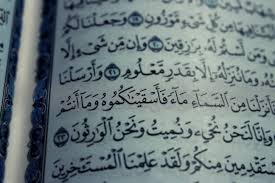 مِن كُلِّ شَىْءٍ مَّوْزُونٍ ١٩ وَجَعَلْنَا لَكُمْ
وَمَن لَّسْتُمْ لَهُۥ بِرَٰزِقِينَ ٢٠ وَإِن مِّن شَىْءٍ إِلَّا
وَمَا نُنَزِّلُهُۥٓ إِلَّا بِقَدَرٍ مَّعْلُومٍ ٢١ وَأَرْسَلْنَا
مِنَ ٱلسَّمَآءِ مَآءً فَأَسْقَيْنَٰكُمُوهُ وَمَآ أَنتُمْ
وَإِنَّا لَنَحْنُ نُحْىِۦ وَنُمِيتُ وَنَحْنُ ٱلْوَٰرِثُونَ ٢٣
مِنكُمْ وَلَقَدْ عَلِمْنَا ٱلْمُسْتَـْٔخِرِينَ